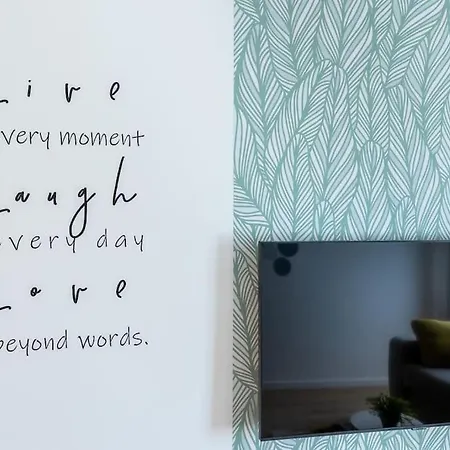 Live
every moment
Laugh
every day
Love
beyond words.